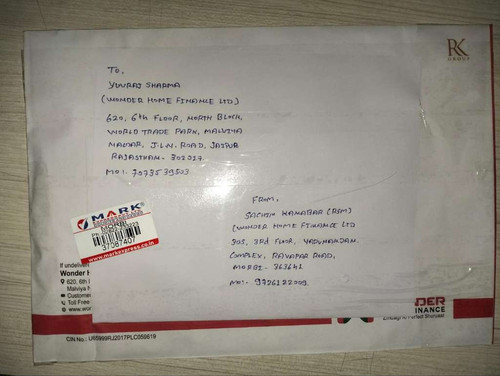 RK
GROUP
To,
YUVRAJ SHARMA
(WONDER HOME FINANCE LTD)
620, 6th FLOOR, NORTH BLOCK,
WORLD TRADE PARK, MALVIYA
NAGAR, J.L.N. ROAD, JAIPUR
RAJASTHAN- 302017
MO:- 7073539503
FROM,
SACHIN KAMABAR (RSM)
(WONDER HOME FINANCE LTD
305, 3rd FLOOR, YADUNANDAN
COMPLEX, RAVAPAR ROAD,
MORBI- 363641
MO:- 9726122009
MARK
MORBI
37087407
www.markexpress.co.in
If undeliver
Wonder H
620, 6th
Malviya N
Customer
Toll Free
www.wo
CIN No.: U65999RJ2017PLC059619
NDER
FINANCE